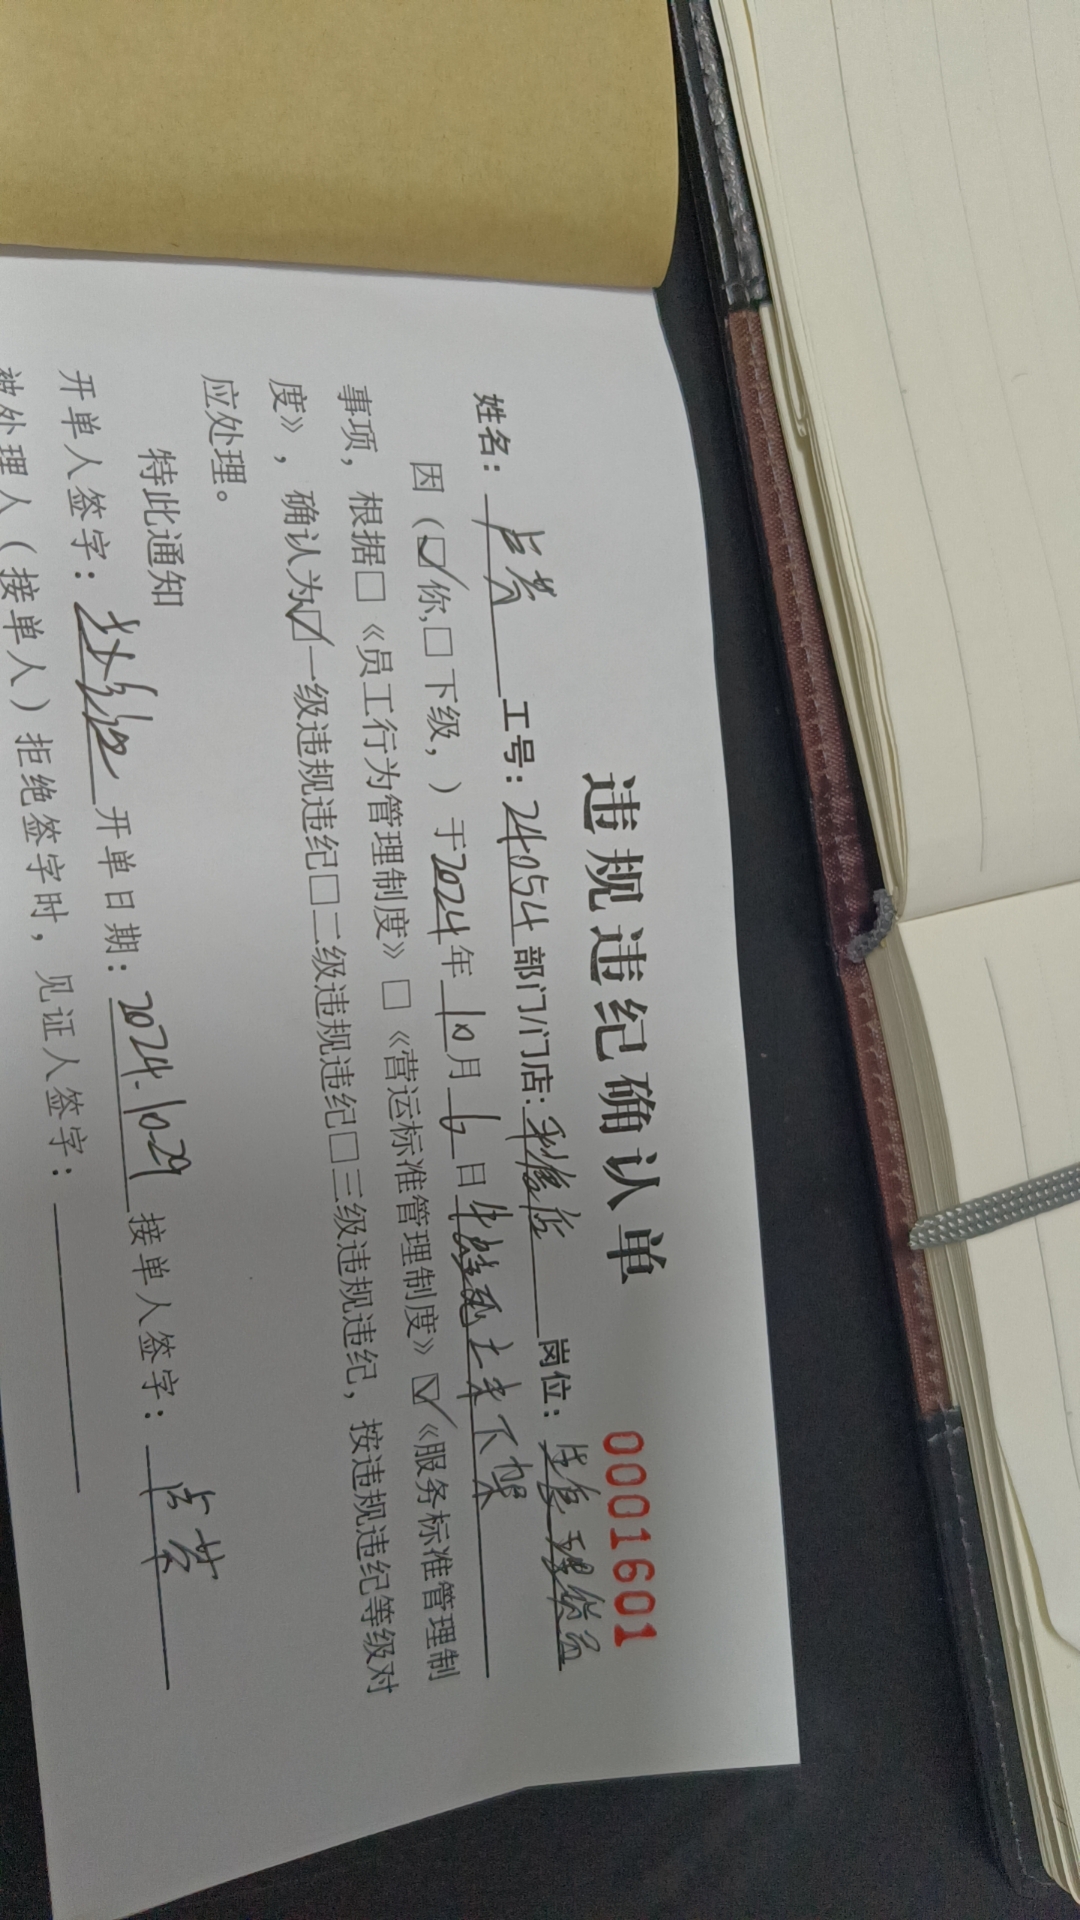 违规违纪确认单 0001601
姓名： 工号：24054 部门/门店： 店 岗位： 理货员
因（☑你,□下级，）于2024年10月6日 未下架
事项，根据□《员工行为管理制度》□《营运标准管理制度》☑《服务标准管理制
度》，确认为☑一级违规违纪□二级违规违纪□三级违规违纪，按违规违纪等级对
应处理。
特此通知
开单人签字： 开单日期：2024.10.29 接单人签字：
被处理人（接单人）拒绝签字时，见证人签字：